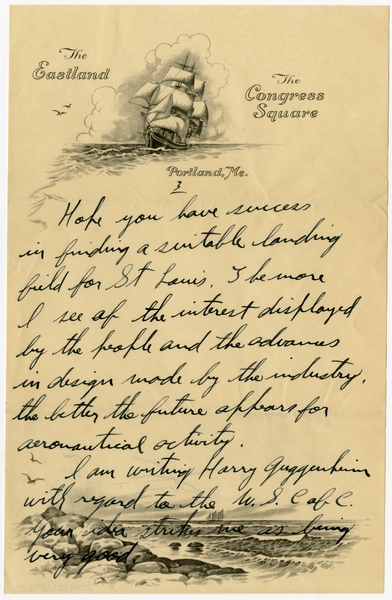 The
Eastland
The
Congress
Square
Portland, Me.
3
Hope you have success
in finding a suitable landing
field for St Louis. The more
I see of the interest displayed
by the people and the advances
in design made by the industry,
the better the future appears for
aeronautical activity.
I am writing Harry Guggenheim
with regard to the U. S. C of C.
Your idea strikes me as being
very good